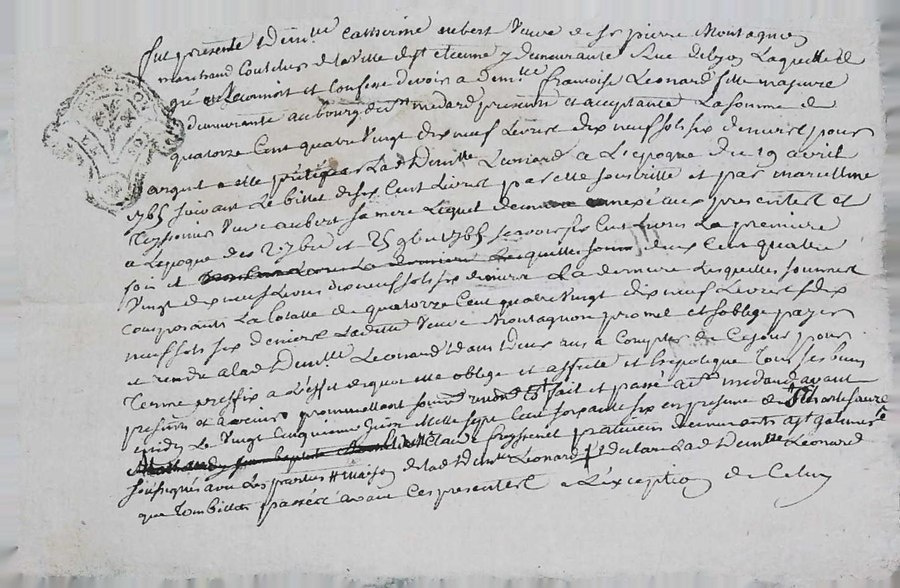 fut presente demlle Catherine aubert veuve de Sr pierre Montagnon
marchand Coutelier de la ville de st etienne y demeurante Rue de lyon Laquelle de
gré Reconnoit et Confesse devoir a demlle francoise Leonard fille majeure
demeurante au bourg de st medard presente et acceptante La somme de
quatorze Cent quatre vingt dix neuf Livres dix neuf sols six deniers pour
argent a elle par Lad demlle Leonard a L'epoque du 19 avril
1765 suivant Le billet de six Cent Livres par elle souscritte et par marcelline
Teyssonier veuve aubert sa mere Lequel annexé aux presentes et
a Lepoque des 27 7bre et 25 9bre 1765 scavoir six Cent Livres La premiere
fois et deux Cent quatre
vingt dix neuf Livres dix neuf sols six deniers La derniere Lesquelles sommes
composants La totalle de quatorze Cent quatre vingt dix neuf Livres dix
neuf sols six deniers Laditte veuve Montagnon promet et soblige payer
et rendre a lad demlle Leonard dans deux ans a Compter de Ce jour pour
terme preffix a L'effet de quoi elle oblige et affecte et hipoteque tous ses biens
presents et avenir promettant fait et passé a st medard avant
midy Le vingt Cinquieme juin Mille sept Cent soixante six en presence de
Claude demeurants a st galmier
soussignés avec Les parties # maison de lad demlle Leonard de Lad demlle Leonard
que tous billets passées avant Ces presentes a L'exception de Celuy